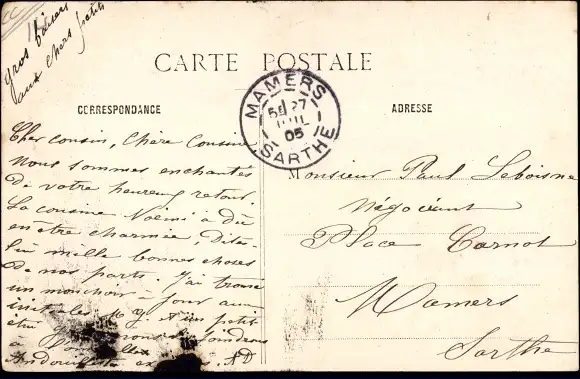 gros baisers
aux chers petits
CARTE POSTALE
MAMERS
27
JUIL
05
SARTHE
CORRESPONDANCE
ADRESSE
Cher cousin, Chère Cousine
Nous sommes enchantés
de votre heureux retour.
La cousine Noémi a dû
en être charmée, Dites-
lui mille bonnes choses
de nos parts. J'ai trouvé
un mouchoir à jour aux
initiales
et un petit
étui
joindrons
Monsieur Paul Leboisne
Négociant
Place Carnot
Mamers
Sarthe